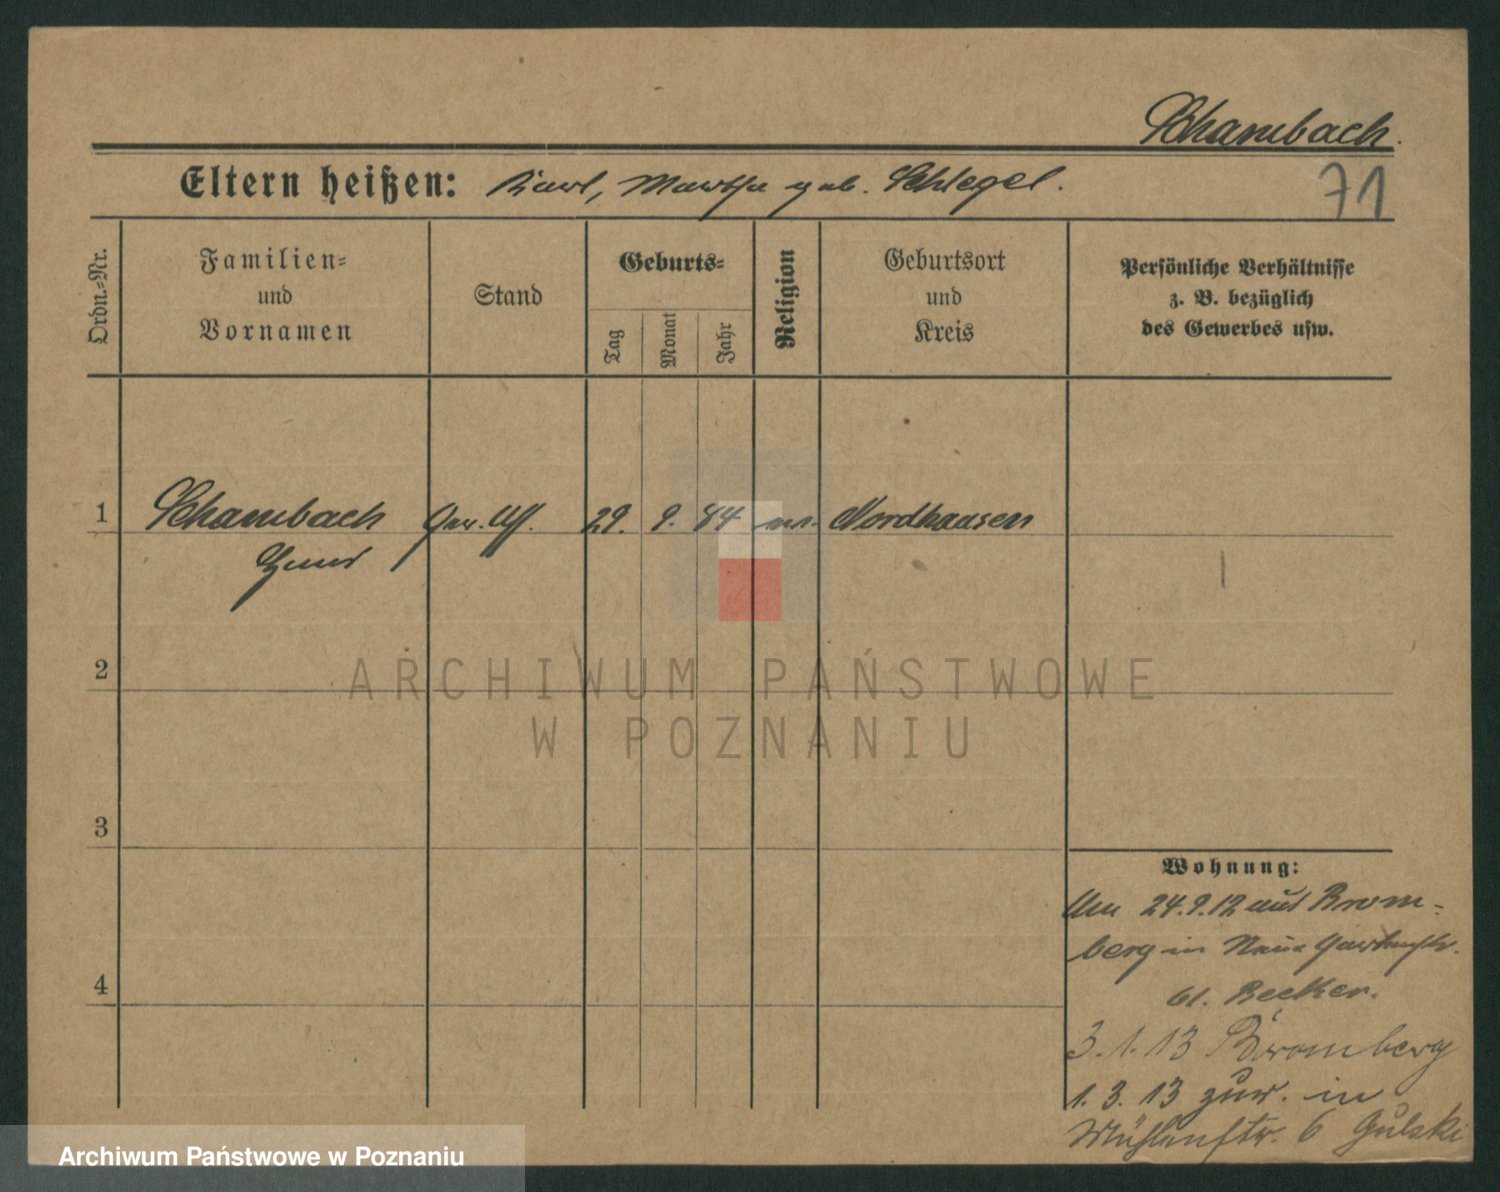 Schambach.
Eltern heißen: Karl, Martha geb. Schlegel.
71
Ordn.-Nr.
Familien-
und
Vornamen
Stand
Geburts-
Tag
Monat
Jahr
Religion
Geburtsort
und
Kreis
Persönliche Verhältnisse
z. B. bezüglich
des Gewerbes usw.
1 Schambach 29. 9. 84 Nordhausen
2
3
4
Wohnung:
Am 24.9.12 aus Brom-
berg in Neue Gartenstr.
61. Becker.
3.1.13 Bromberg
1.3.13 zur. in
Mühlenstr. 6 Gulski
ARCHIWUM PAŃSTWOWE
W POZNANIU
Archiwum Państwowe w Poznaniu